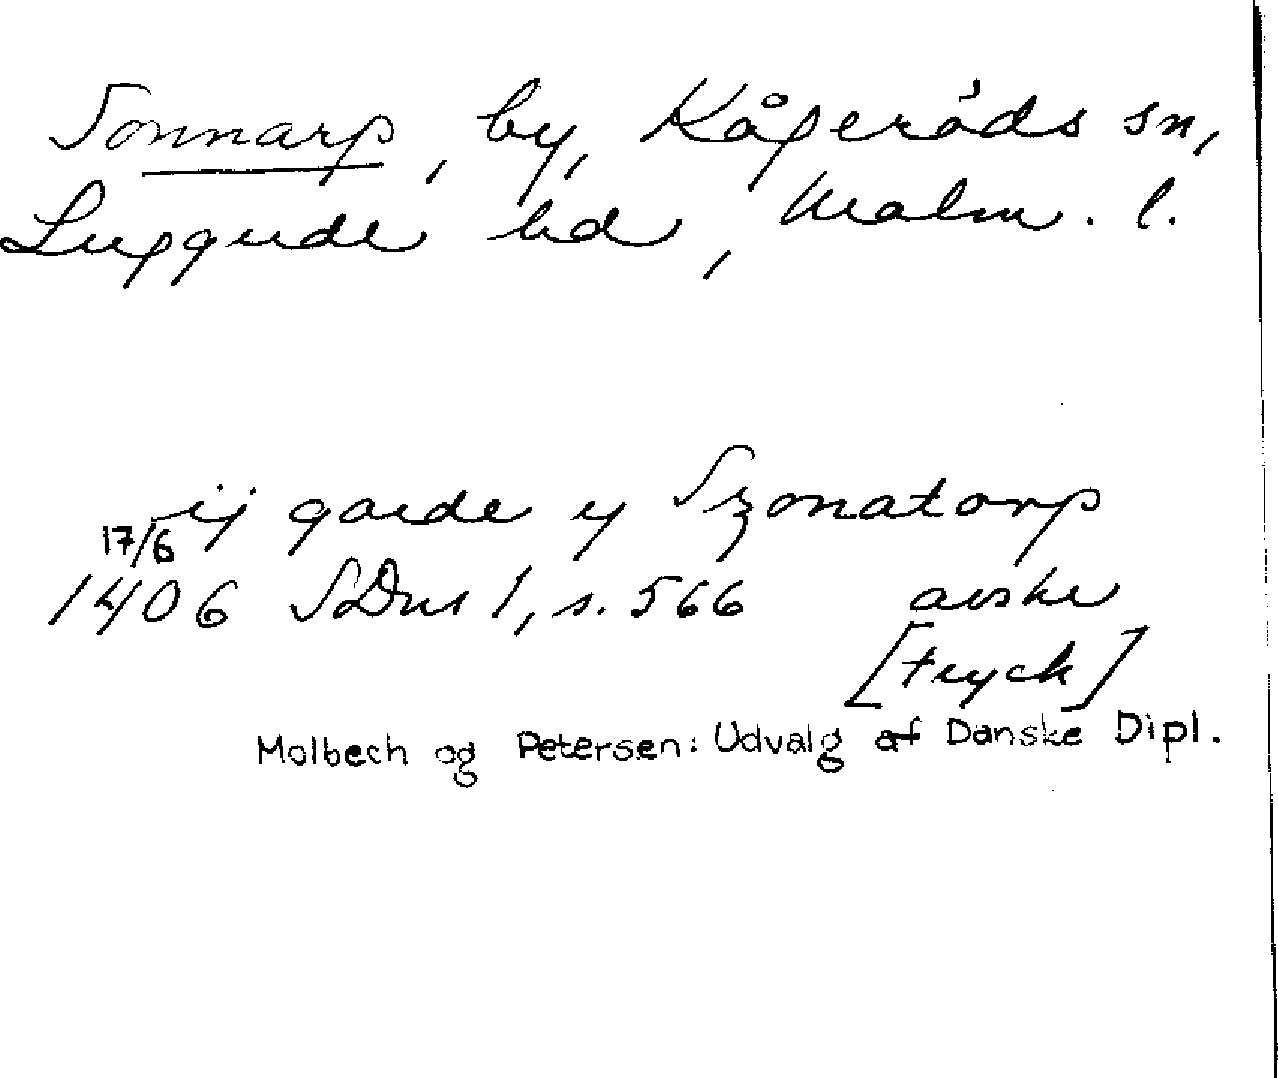 Sonnarp, by, Kågeröds sn,
Luggude hd, Malm. l.
ij garde y Szonatorp
17/6
1406 SDns 1, s. 566 avskr
[tryck]
Molbech og Petersen: Udvalg af Danske Dipl.